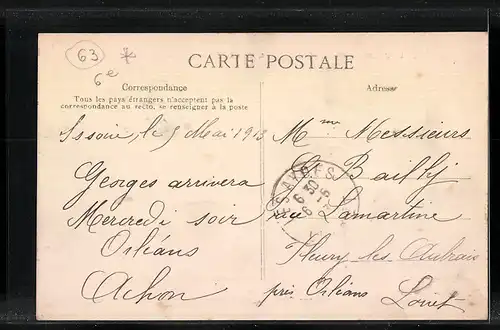 63
6e
*
CARTE POSTALE
Correspondance
Tous les pays étrangers n'acceptent pas la
correspondance au recto, se renseigner à la poste
Adresse
Issoire, le 5 Mai 1913
Georges arrivera
Mercredi soir
Orléans
Achon
Messieurs
Bailly
rue Lamartine
Fleury les Aubrais
près Orléans
Loiret
AYDES
6 30
6 - 5